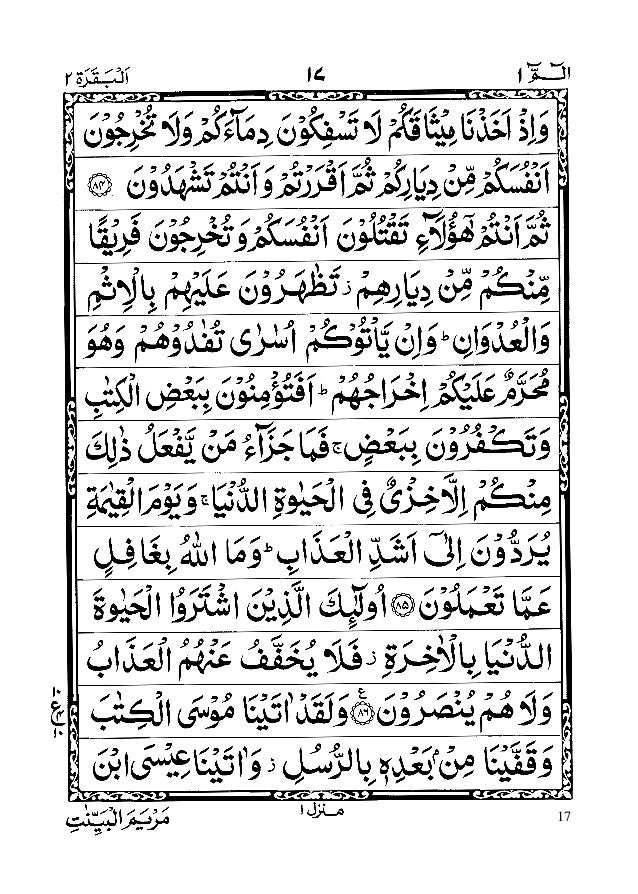 الٓمّٓ ١ ١٧ اَلْبَقَرَة ٢
وَاِذْ اَخَذْنَا مِيْثَاقَكُمْ لَا تَسْفِكُوْنَ دِمَآءَكُمْ وَلَا تُخْرِجُوْنَ
اَنْفُسَكُمْ مِّنْ دِيَارِكُمْ ثُمَّ اَقْرَرْتُمْ وَاَنْتُمْ تَشْهَدُوْنَ ۝٨٤
ثُمَّ اَنْتُمْ هٰٓؤُلَآءِ تَقْتُلُوْنَ اَنْفُسَكُمْ وَتُخْرِجُوْنَ فَرِيْقًا
مِّنْكُمْ مِّنْ دِيَارِهِمْ ز تَظٰهَرُوْنَ عَلَيْهِمْ بِالْاِثْمِ
وَالْعُدْوَانِ ؕ وَاِنْ يَّاْتُوْكُمْ اُسٰرٰى تُفٰدُوْهُمْ وَهُوَ
مُحَرَّمٌ عَلَيْكُمْ اِخْرَاجُهُمْ ؕ اَفَتُؤْمِنُوْنَ بِبَعْضِ الْكِتٰبِ
وَتَكْفُرُوْنَ بِبَعْضٍ ۚ فَمَا جَزَآءُ مَنْ يَّفْعَلُ ذٰلِكَ
مِنْكُمْ اِلَّا خِزْىٌ فِى الْحَيٰوةِ الدُّنْيَا ۚ وَيَوْمَ الْقِيٰمَةِ
يُرَدُّوْنَ اِلٰٓى اَشَدِّ الْعَذَابِ ؕ وَمَا اللّٰهُ بِغَافِلٍ
عَمَّا تَعْمَلُوْنَ ۝٨٥ اُولٰٓئِكَ الَّذِيْنَ اشْتَرَوُا الْحَيٰوةَ
الدُّنْيَا بِالْاٰخِرَةِ ز فَلَا يُخَفَّفُ عَنْهُمُ الْعَذَابُ
وَلَا هُمْ يُنْصَرُوْنَ ۝٨٦ ع وَلَقَدْ اٰتَيْنَا مُوْسَى الْكِتٰبَ
١٠ ع ٤ ١٠
وَقَفَّيْنَا مِنْۢ بَعْدِهٖ بِالرُّسُلِ ز وَاٰتَيْنَا عِيْسَى ابْنَ
منزل ١
مَرْيَمَ الْبَيِّنٰتِ
17